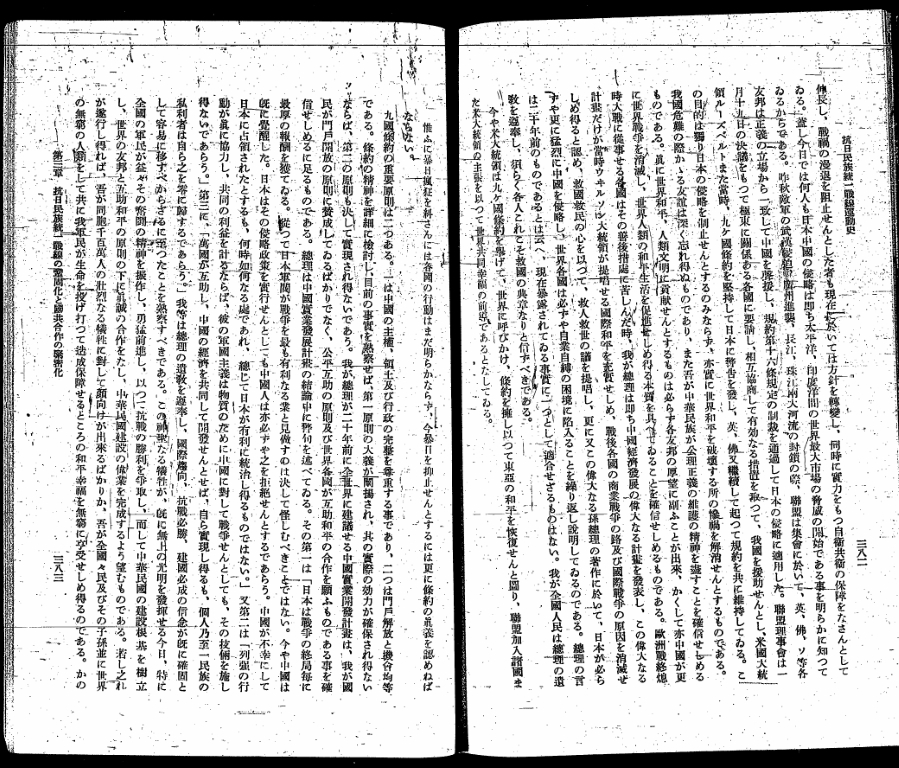 抗日民族統一戰線運動史
三八二
伸長し、戰禍の漫延を阻止せんとした者も現在に於いては方針を轉變し、同時に實力をもつ自衞共衞の保障をなさんとして
ゐる。蓋し今日では何人も日本中國の侵略は即ち太平洋、印度洋間の世界最大市場の脅威の開始である事を明らかに知つて
ゐるからである。昨秋敵軍の武漢侵迫、廣州進襲、長江、珠江兩大河流の封鎖の際、聯盟は集會に於いて、英、佛、ソ等各
友邦は正義の立場から一致して中國を聲援し、規約第十六條規定の制裁を通過して日本の侵略に適用した。聯盟理事會は一
月十九日の決議をもつて極東に關係ある各國に要請し、相互協商して有効なる措置を取つて、我國を援助せんとし、米國大統
領ルーズベルトまた當時、九ケ國條約を堅持して日本に警告を發し、英、佛又繼續して起つて規約を共に維持してゐる。こ
の目的は獨り日本の侵略を制止せんとするのみならず、亦實に世界和平を破壞する所の慘禍を解消せんとするものである。
我國危難の際かゝる友誼は深く忘れ得ぬものであり、また吾が中華民族が公理正義の維護の精神を盡すことを確信せしめる
ものである。眞に世界和平、人類文明に貢献せんとするものは必らず各友邦の厚望に副ふことが出來、かくして亦中國が更
に世界戰爭を消滅し、世界人類の和平生活を促進せしめ得る本質を具有てゐることを確信せしめるものである。歐洲戰終熄
時大戰に從事せる各國はその善後措處に苦しんだ時、我が總理は即ち中國經濟發展の偉大なる計畫を發表し、この偉大なる
計畫だけが當時ウヰルソン大統領が提唱せる國際和平を充實せしめ、戰後各國の商業戰爭の路及び國際戰爭の原因を消滅せ
しめ得ると認め、救國救民の心を以つて、救人救世の議を提唱し、更に又この偉大なる孫總理の著作に於いて、日本が必ら
ずや更に猛烈に中國を侵略し、世界各國は必ずや自業自縛の困境に陷入ることを繰り返し說明してゐるのである。總理の言
は二十年前のものであるとは云へ、現在暴露されてゐる事實に一つとして適合せざるものはない。我が全國人民は總理の遺
敎を遵奉し、須らく各人これこそ救國の典章なりと信ずべきである。
今や米大統領は九ケ國條約を擧げて、世界に呼びかけ、條約を擁し以つて東亞の和平を恢復せんと圖り、聯盟加入諸國ま
た米大統領の主張を以つて世界共同幸福の前途であるとなしてゐる。
惟ふに暴日瘋狂を糾さんには各國の行動はまだ明らかならず、今暴日を抑止せんとするには更に條約の眞義を認めねば
ならない。
九國條約の重要原則は二つある。一は中國の主權、領土及び行政の完整を尊重する事であり、二つは門戶解放と機合均等
である。條約の精神を詳細に檢討し、目前の事實を熟察せば、第一原則の大義が闡揚され、其の實際の効力が確保され得ない
ならば、第二の原則も決して實現され得ないであらう。我が總理が二十年前に全世界に建議せる中國實業開發計畫は、我が國
民が門戶開放の原則に賛成してゐるばかりでなく、公平互助の原則及び世界各國が互助和平の合作を願ふものである事を確
信せしめるに足るものである。總理は中國實業發展計畫の結論中に警句を述べてゐる。その第一は「日本は戰爭の終局毎に
最厚の報酬を獲てゐる。從つて日本軍閥が戰爭を最も有利なる業と見做すのは決して怪しむべきことではない。今や中國は
既に覺醒した。日本はその侵略政策を實行せんとしても中國人は必ずや之を拒絕せんとするであらう。中國が不幸にして
日本に占領されたとするも、何時如何なる處であれ、總じて日本が有利に統治し得るものではない。」又第二は「列强の行
動が眞に協力し、共同の利益を計るならば、彼の軍國主義は物質のために中國に對して戰爭せんとしても、その技倆を施し
得ないであらう。」第三に、「萬國が互助し、中國の經濟を共同して開發せんとせば、自ら實現し得るも、個人乃至一民族の
私利者は自ら之を零に歸するであらう。」我等は總理の遺敎を遵奉し、國際趨向、抗戰必勝、建國必成の信念が既に確固と
して容易に移すべからざるに至つたことを熟察すべきである。この神聖なる犧牲が、既に無上の光明を發揮せる今日、特に
全國の軍民が益々その奮鬪の精神を振作し、勇猛前進し、以つて抗戰の勝利を爭取し、而して中華民國の建設根基を樹立
し、世界の友邦と互助和平の原則の下に眞誠の合作をなし、中華民國建設の偉業を完成するよう望むものである。若し之れ
が遂行し得れば、吾が同胞千百萬人の壯烈なる犧牲に對して顏向けが出來るばかりか、吾が全國々民及びその子孫並に世界
の無窮の人類をして共に我軍民が生命を投げ打つて造成保障せるところの和平幸福を無窮に享受せしめ得るのである。かの
第二章 抗日民族統一戰線の鞏固化と國共合作の緊密化
三八三